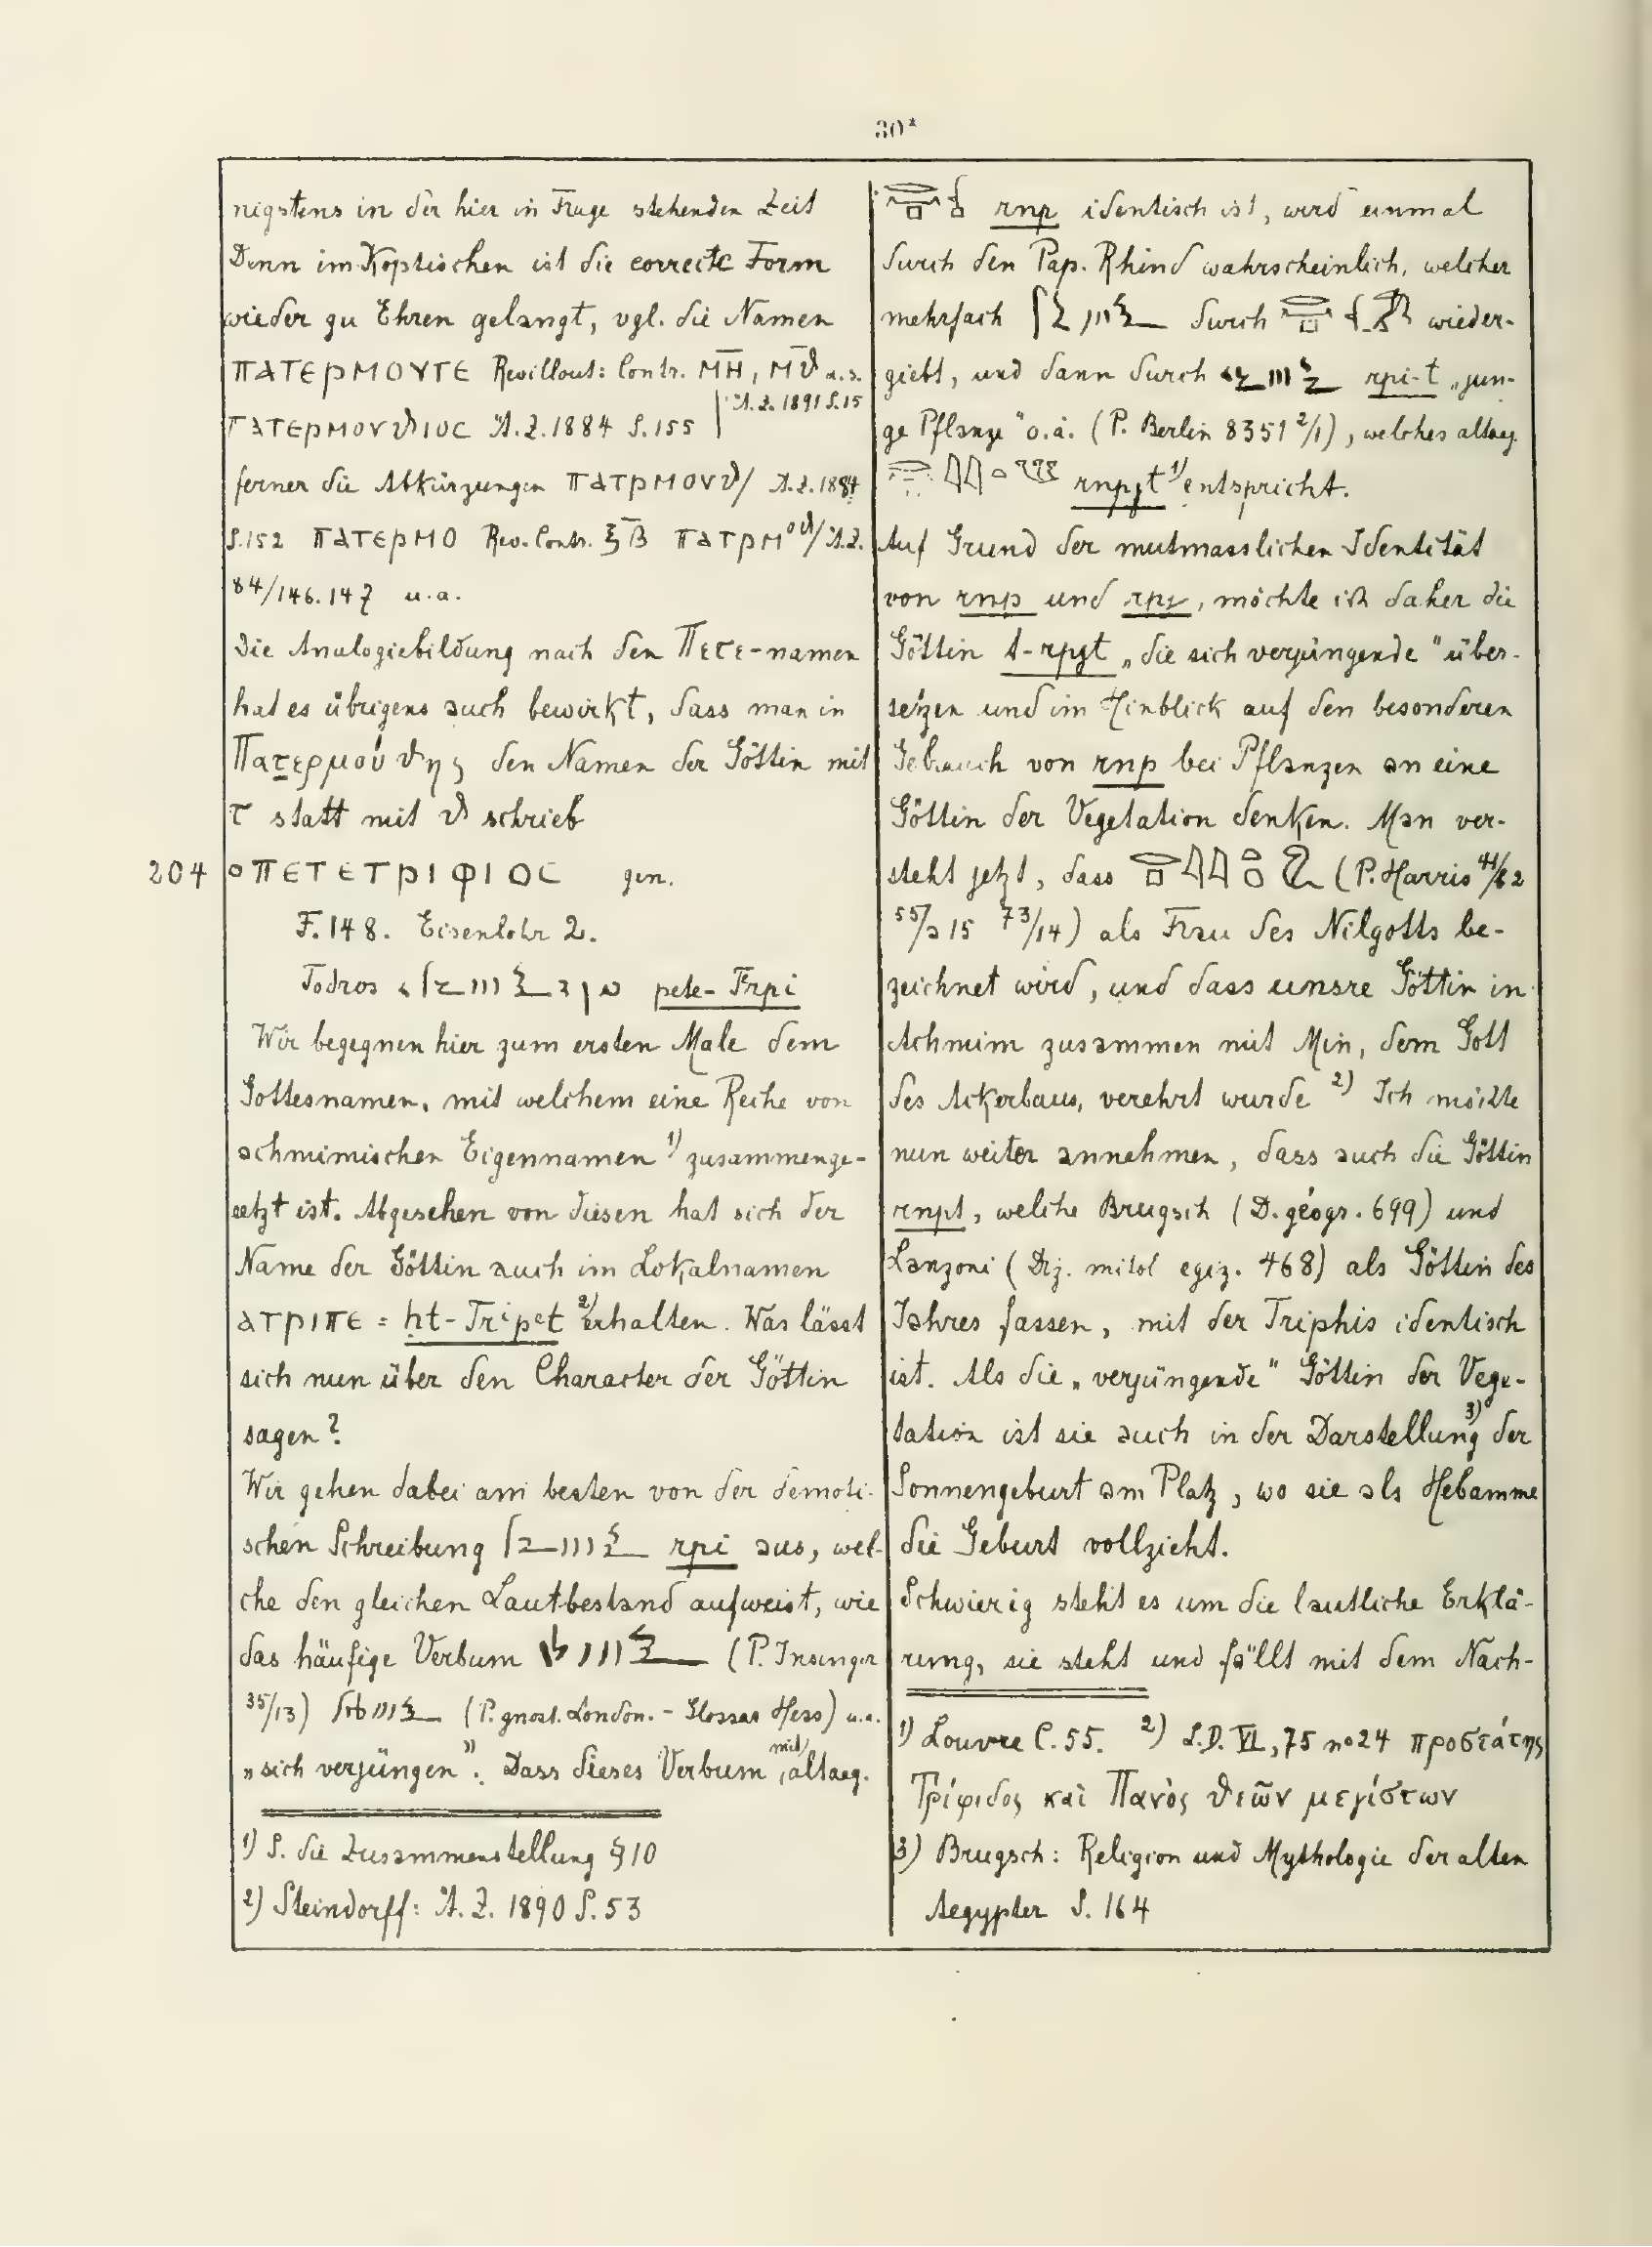 30*
nigstens in der hier in Frage stehenden Zeit
Denn im Koptischen ist die correcte Form
wieder zu Ehren gelangt, vgl. die Namen
ⲡⲁⲧⲉⲣⲙⲟⲩⲧⲉ Revillout: Contr. ⲙ̅ⲏ̅, ⲙ̅ⲑ̅ u.s.
ⲡⲁⲧⲉⲣⲙⲟⲩⲑⲓⲟⲥ Ä.Z. 1884 S. 155 | Ä.Z. 1891 S. 15
ferner die Abkürzungen ⲡⲁⲧⲣⲙⲟⲩⲑ/ Ä.Z. 1884
S. 152 ⲡⲁⲧⲉⲣⲙⲟ Rev. Contr. ⲝ̅ⲃ̅ ⲡⲁⲧⲣⲙᵒᶹ/ Ä.Z.
84/146. 147 u.a.
Die Analogiebildung nach den Πετε-namen
hat es übrigens auch bewirkt, dass man in
Πατερμούθης den Namen der Göttin mit
τ statt mit ϑ schrieb
204 ⲟⲡⲉⲧⲉⲧⲣⲓⲫⲓⲟⲥ gen.
F. 148. Eisenlohr 2.
Todros pete-Trpi
Wir begegnen hier zum ersten Male dem
Gottesnamen, mit welchem eine Reihe von
achmimischen Eigennamen 1) zusammenge-
setzt ist. Abgesehen von diesen hat sich der
Name der Göttin auch im Lokalnamen
ⲁⲧⲣⲓⲡⲉ = ht-Tripet 2) erhalten. Was lässt
sich nun über den Character der Göttin
sagen?
Wir gehen dabei am besten von der demoti-
schen Schreibung rpi aus, wel-
che den gleichen Lautbestand aufweist, wie
das häufige Verbum (P. Insinger
35/13) (P. gnost. London. - Glossar Hess) u.a.
„sich verjüngen". Dass dieses Verbum, mit altaeg.
1) S. die Zusammenstellung § 10
2) Steindorff: Ä.Z. 1890 S. 53
rnp identisch ist, wird einmal
durch den Pap. Rhind wahrscheinlich, welcher
mehrfach durch wieder-
giebt, und dann durch rpi-t „jun-
ge Pflanze" o.ä. (P. Berlin 8351 2/1), welches altaeg.
1) entspricht.
Auf Grund der mutmasslichen Identität
von rnp und rpy, möchte ich daher die
Göttin t-rpyt „die sich verjüngende" über-
setzen und im Hinblick auf den besonderen
Gebrauch von rnp bei Pflanzen an eine
Göttin der Vegetation denken. Man ver-
steht jetzt, dass (P. Harris
73/14) als Frau des Nilgotts be-
zeichnet wird, und dass unsre Göttin in
Achmim zusammen mit Min, dem Gott
des Ackerbaus, verehrt wurde 2) Ich möchte
nun weiter annehmen, dass auch die Göttin
rnpt, welche Brugsch (D. géogr. 699) und
Lanzoni (Diz. mitol egiz. 468) als Göttin des
Jahres fassen, mit der Triphis identisch
ist. Als die „verjüngende" Göttin der Vege-
tation ist sie auch in der Darstellung 3) der
Sonnengeburt am Platz, wo sie als Hebamme
die Geburt vollzieht.
Schwierig steht es um die lautliche Erklä-
rung, sie steht und fällt mit dem Nach-
1) Louvre C. 55. 2) L.D. VI, 75 no 24 προστάτης
Τρίφιδος καὶ Πανὸς θεῶν μεγίστων
3) Brugsch: Religion und Mythologie der alten
Aegypter S. 164